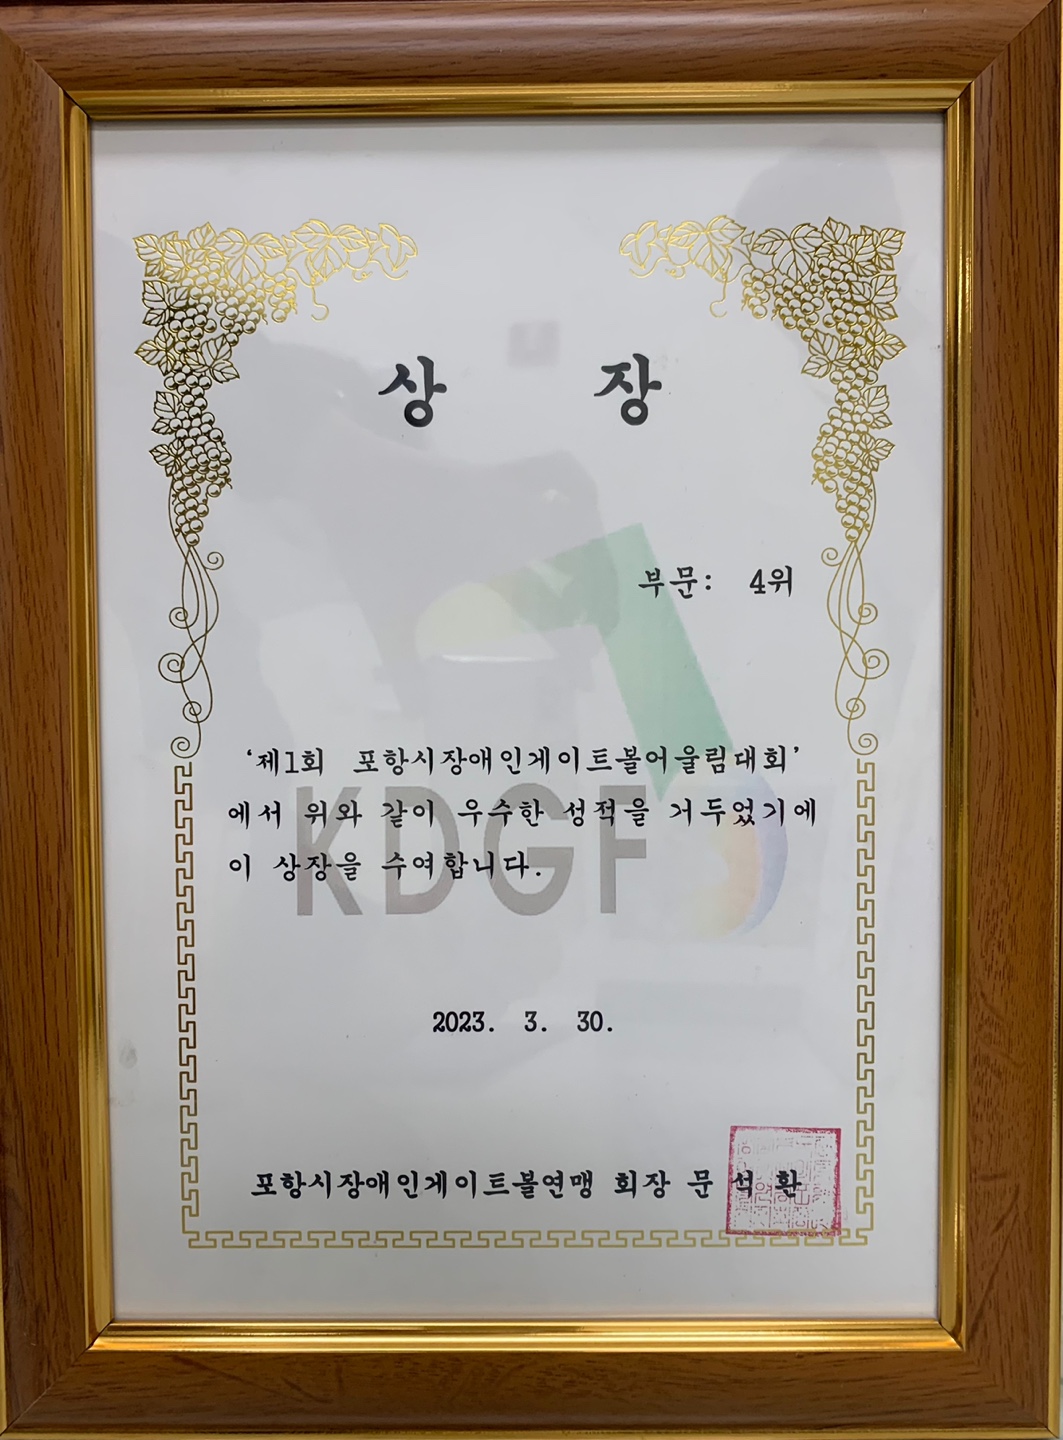 상 장
부문: 4위
‘제1회 포항시장애인게이트볼어울림대회’
에서 위와 같이 우수한 성적을 거두었기에
이 상장을 수여합니다.
KDGF
2023. 3. 30.
포항시장애인게이트볼연맹 회장 문 석 환